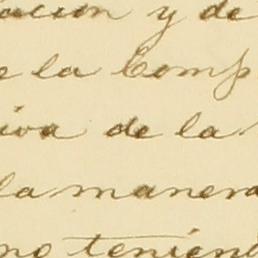 ación y de
e la Comp
iva de la
la manera
mo teniend